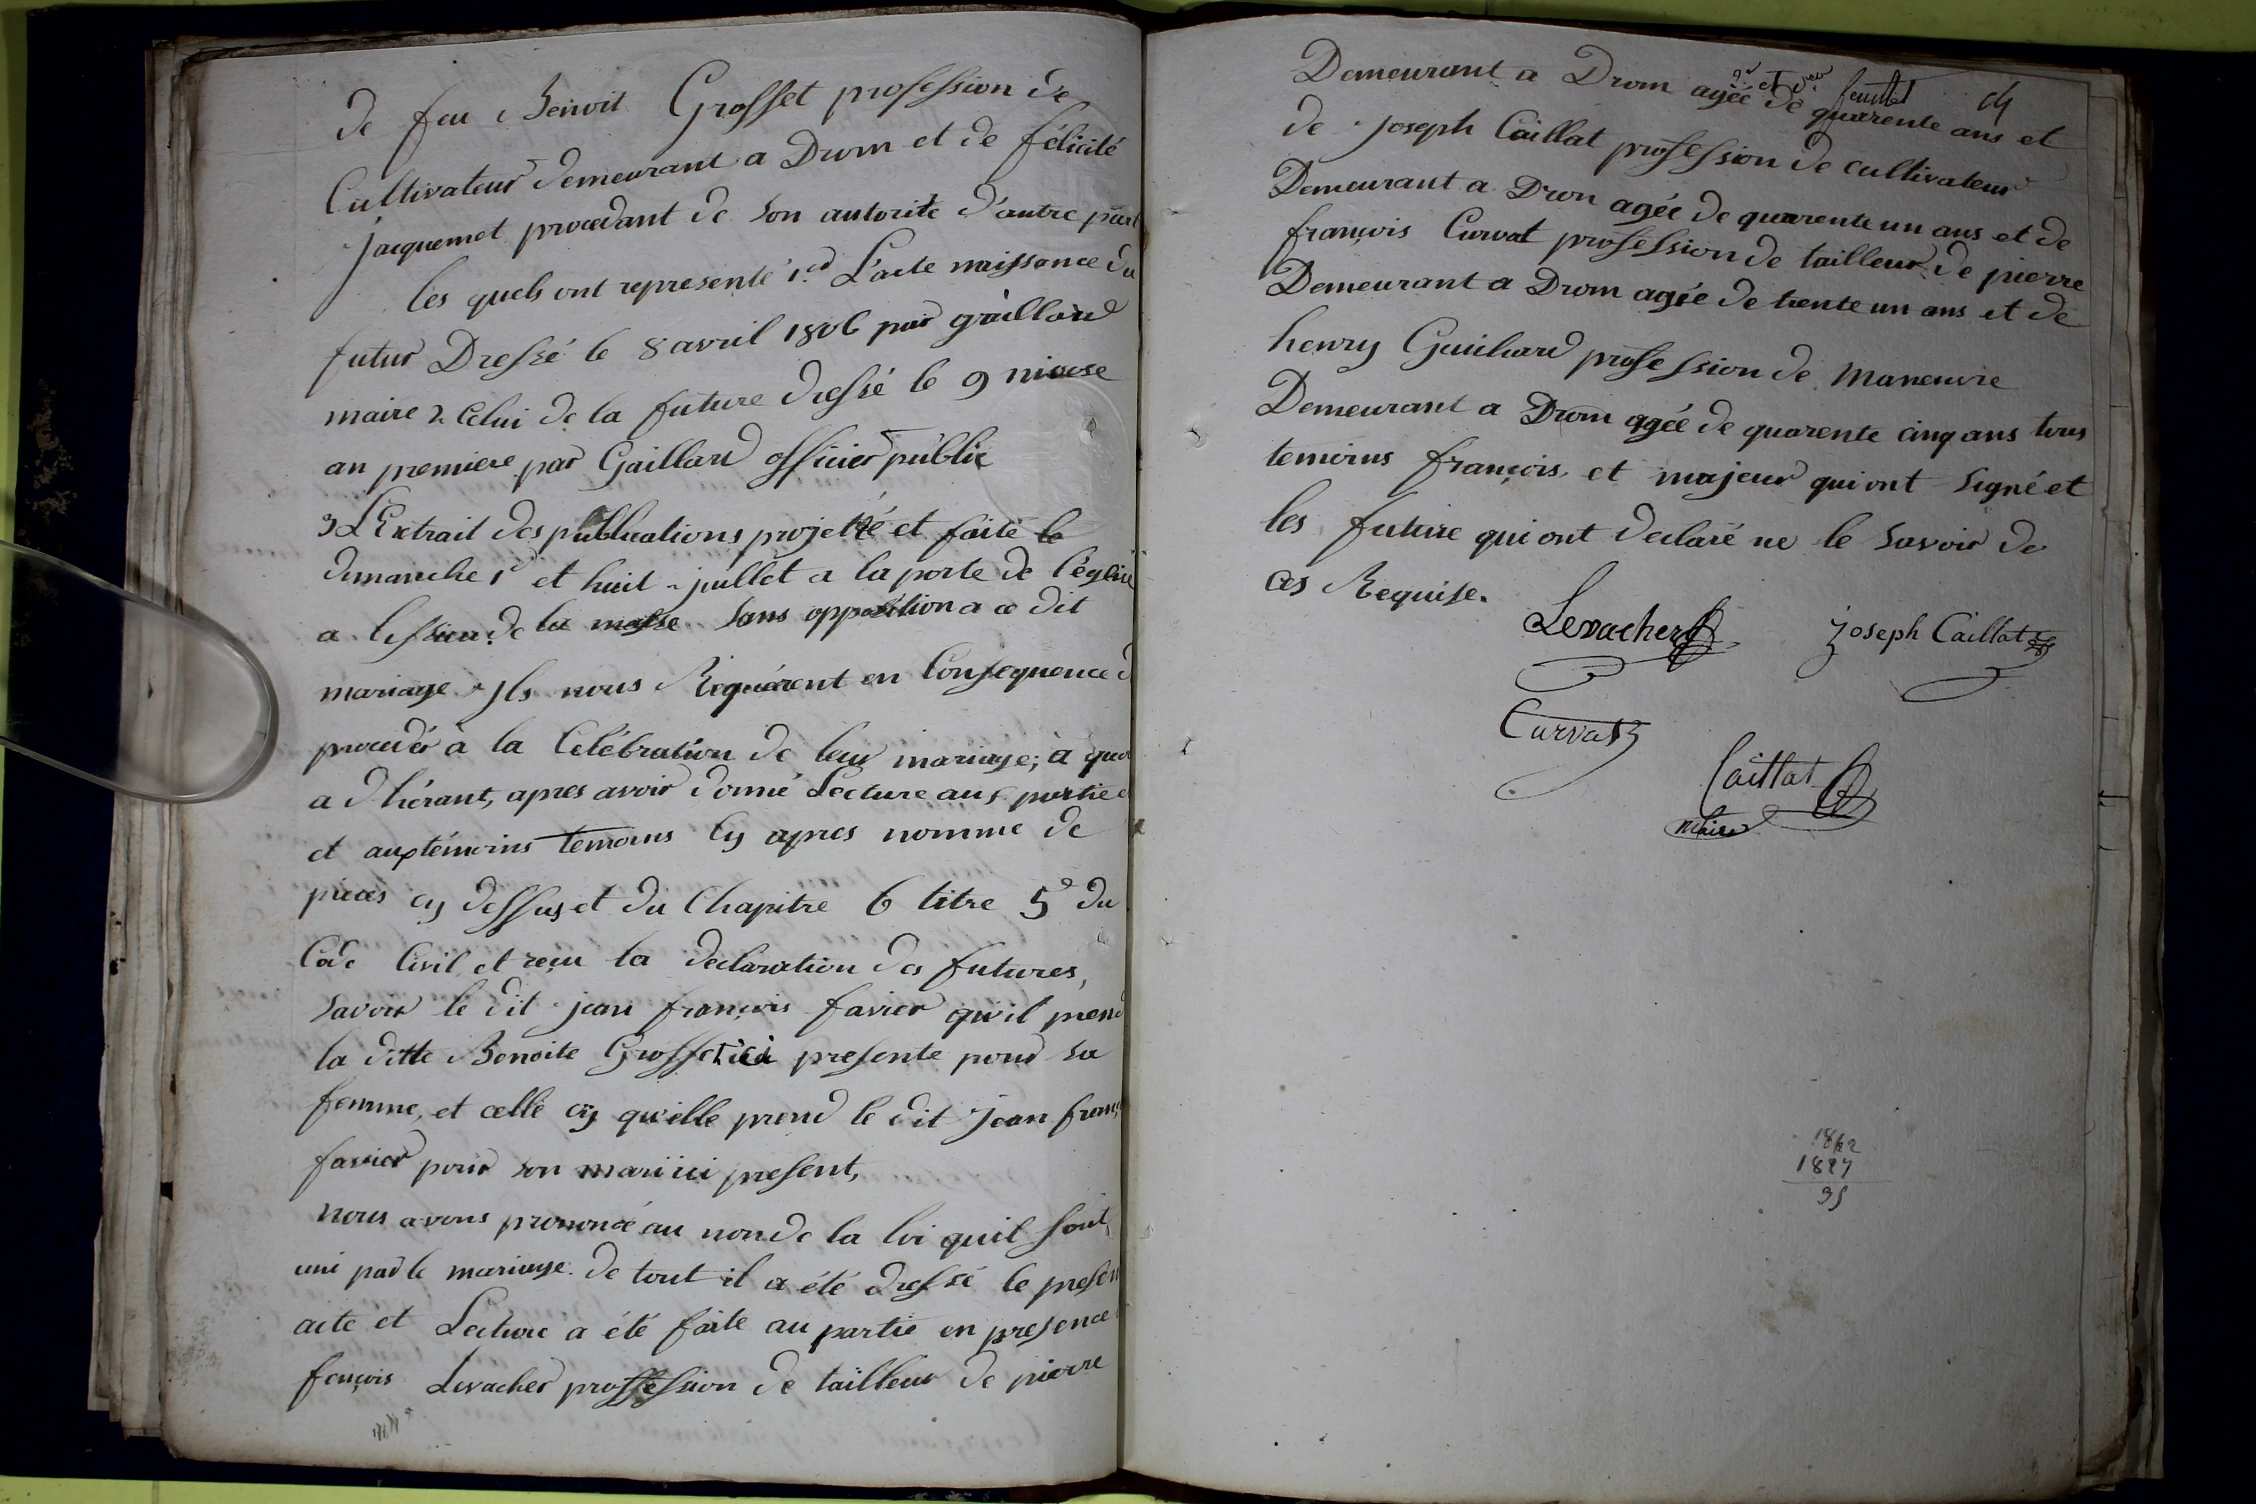 de feu Benoit Grosset profession de
Cultivateur demeurant a Drom et de félicité
jacquemet procedant de son autorité d'autre part
les quels ont representé 1.er L'acte naissance du
futur Dressé le 8 avril 1806 par gaillard
maire 2 Celui de la future dressé le 9 nivose
an premiere par Gaillard officier public
3 L'Extrait des publications projetté et faite le
dimanche 1er et huit juillet a la porte de l'église
a l'essieu de la messe sans opposition a ce dit
mariage Ils nous Requérent en Consequence d
proceder à la Celébration de leur mariage; a quoi
a d'hérant, apres avoir donné Lecture aux partie
et aux témoins temoins cy apres nommé de
pieces cy dessus et du Chapitre 6 titre 5e du
Code Civil et reçu la declaration des futures,
savoir le dit jean françois favier qu'il prend
la ditte Benoite Grosset ici presente pour sa
femme, et celle cy qu'elle prend le dit jean franç
favier pour son mari ici present,
nous avons prononcé au non de la loi quil sont
uni par le mariage. de tout il a été dressé le presen
acte et Lecture a été faite au partie en presence
fençois Levacher proffession de tailleur de pierre
2e et der feuillet
Demeurant a Drom agée de quarente ans et
de joseph Caillat profession de cultivateur
Demeurant a Dron agée de quarente un ans et de
françois Curvat profession de tailleur de pierre
Demeurant a Drom agée de trente un ans et de
henry Guichard profession de Maneuvre
Demeurant a Drom agée de quarente cinq ans tous
temoins françois et majeur qui ont signé et
les future qui ont declaré ne le savoir de
ces Requise.
Levacher joseph Caillat
Curvat
Caillat
maire
1862
1827
35